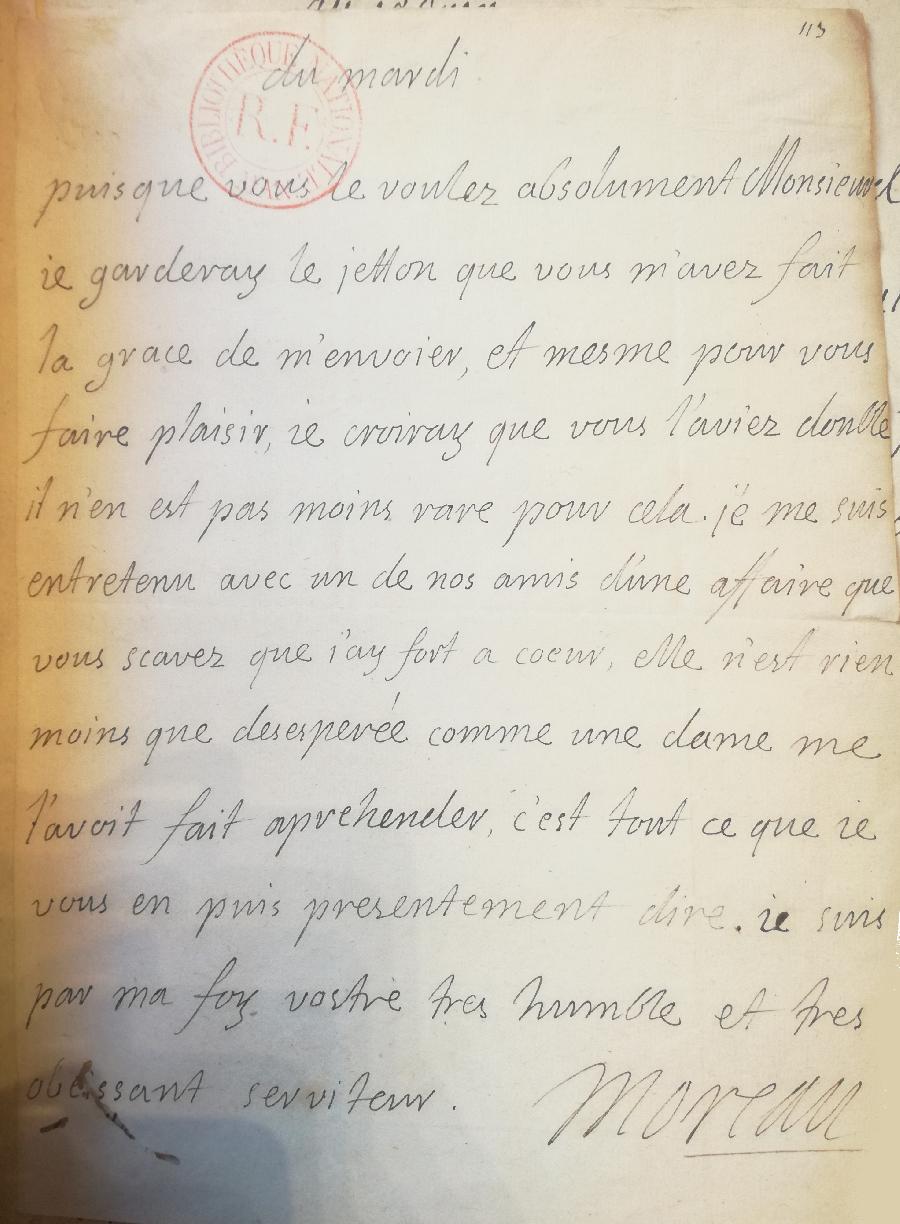 113
du mardi
BIBLIOTHEQUE NATIONALE
R.F.
puisque vous le voulez absolument Monsieur
ie garderay le jetton que vous m'avez fait
la grace de m'envoier, et mesme pour vous
faire plaisir, ie croiray que vous l'aviez double
il n'en est pas moins rare pour cela. je me suis
entretenu avec un de nos amis d'une affaire que
vous scavez que i'ay fort a coeur, elle n'est rien
moins que desesperée comme une dame me
l'avoit fait aprehender, c'est tout ce que ie
vous en puis presentement dire. ie suis
par ma foy vostre tres humble et tres
obeissant serviteur. Moreau